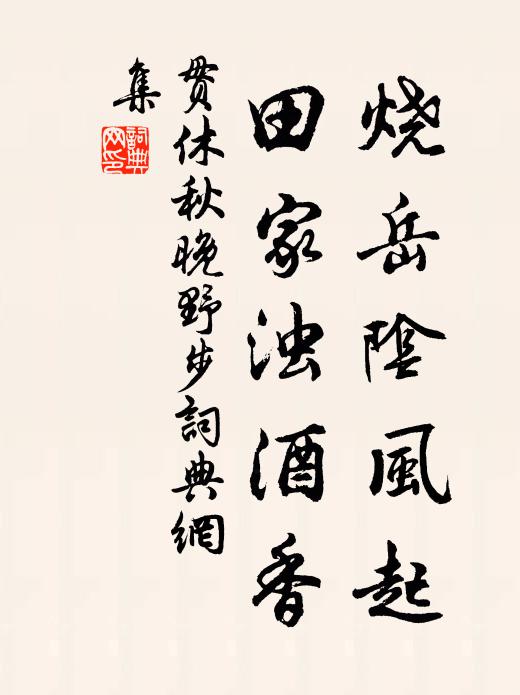 烧岳陰風起
田家浊酒香
贯休秋晚野步詞典網
集
詞典
网印